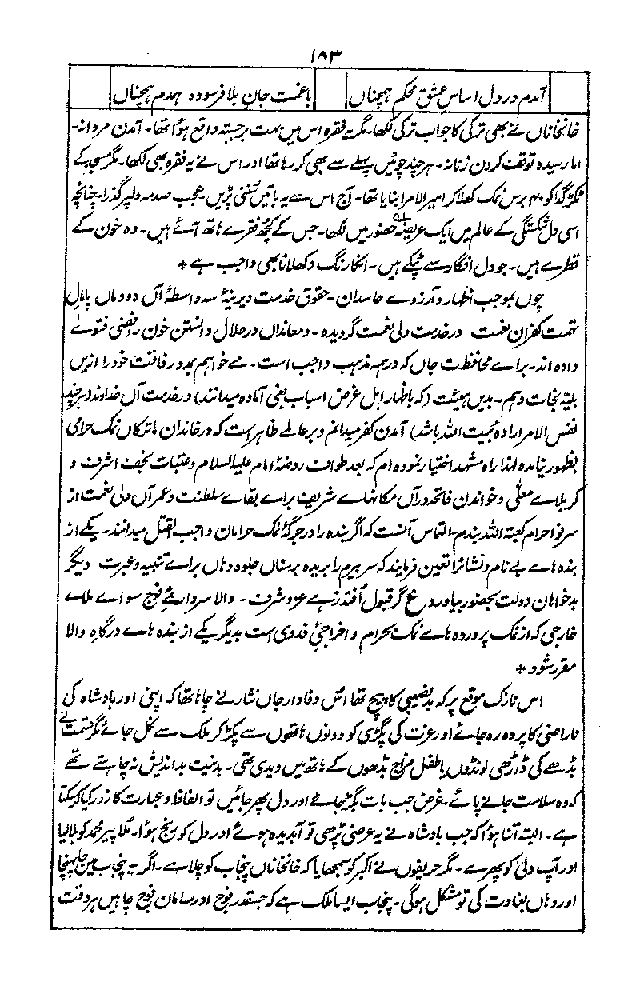 ۱۸۳
آمدم در دل اساس عشق محکم ہمچناں باغمت جان بلا فرسودہ ہمدم ہمچناں
خانخاناں نے بھی ترکی کا جواب ترکی لکھا۔ مگر یہ فقرہ اس میں بہت برجستہ واقع ہؤا تھا۔ آمدن مردانہ۔
اما رسیدہ توقف کردن زنانہ۔ ہر چند چوٹیں پہلے سے بھی کر رہا تھا اور اس نے یہ فقرہ بھی لکھا۔ مگر مسجد کے
گدا کو ۴۰ برس نمک کھلا کر امیر الامرا بنایا تھا۔ آج اس سے یہ باتیں سننی پڑیں۔ عجب صدمہ دلپر گذرا۔ چنانچہ
اسی دل شکستگی کے عالم میں ایک عریضہ حضور میں لکھا۔ جس کے کچھ فقرے ہاتھ آئے ہیں۔ وہ خون کے
قطرے ہیں۔ جو دل افگار سے ٹپکے ہیں۔ انکا رنگ دکھلانا بھی واجب ہے *
چوں بموجب اظہار و آرزوے حاسدان۔ حقوق خدمت دیرینۂ سہ واسطۂ آں دودماں پامال
تہمت کفران نعمت در خدمت ولی نعمت گردیدہ۔ و معانداں در حلال دانستن خون۔ فتوے
دادہ اند۔ براے محافظت جاں کہ در ہمہ مذہب واجب است۔ مے خواہم بمدد رفاقت خود را ازیں
بلیہ نجات دہم۔ بدیں ہیئت (کہ باظہار اہل غرض اسباب بغی آمادہ میدانند) در خدمت آں خداوند ہر چند
نفس الامر ارادہ بیت اللہ باشد) آمدن کفر میدانم و بر عالمے ظاہر است کہ در خاندان ما ترکان نمک حرامی
بظہور نیامدہ لہٰذا راہ مشہد اختیار نمودہ ام کہ بعد طواف روضۂ امام علیہ السلام و عتبات نجف اشرف و
کربلاے معلّٰی و خواندن فاتحہ در آں مکانہاے شریف براے بقاے سلطنت و عمر آں ولی نعمت از
سر نو احرام کعبۃ اللہ بندم۔ التماس آنست کہ اگر بندہ را در جرگۂ نمک حرامان واجب القتل میدانند۔ یکے از
بندہ ہاے بے نام و نشان را تعین فرمایند کہ سر بیرم را بریدہ بر سناں جلوہ دہاں براے تنبیہ و عبرت دیگر
بدخواہان دولت بحضور بیاورد ع گر قبول اُفتد زہے عز و شرف۔ والا سرداریٔ فوج سواے ملاے
خارجی کہ از نمک پروردہ ہاے نمک بحرام و اخراجی فدوی است بدیگر یکے از بندہ ہاے درگاہ والا
مقرر شود *
اس نازک موقع پر کہ بد نصیبی کا پیچ تھا اُس وفادار جاں نثار نے چاہا تھا کہ اپنی اور بادشاہ کی
ناراضی کا پردہ رہ جائے اور عزت کی پگڑی کو دونوں ہاتھوں سے پکڑ کر ملک سے نکل جائے۔ مگر قسمت نے
بڈھے کی ڈاڑھی لونڈوں یا طفل مزاج بڈھوں کے ہاتھ میں دیدی تھی۔ بدنیت بداندیش نہ چاہتے تھے
کہ وہ سلامت جانے پائے۔ غرض جب بات بگڑ جائے اور دل پھر جائیں تو الفاظ و عبارت کا زور کیا کر سکتا
ہے۔ البتہ اتنا ہؤا کہ جب بادشاہ نے یہ عرضی پڑھی تو آبدیدہ ہوئے اور دل کو رنج ہؤا۔ ملا پیر محمد کو بلا لیا
اور آپ دلی کو پھرے۔ مگر حریفوں نے اکبر کو سمجھایا کہ خانخاناں پنجاب کو چلا ہے۔ اگر یہ پنجاب میں جا پہنچا
اور وہاں بغاوت کی تو مشکل ہوگی۔ پنجاب ایسا ملک ہے کہ جسقدر فوج اور سامان فوج چاہیں ہر وقت